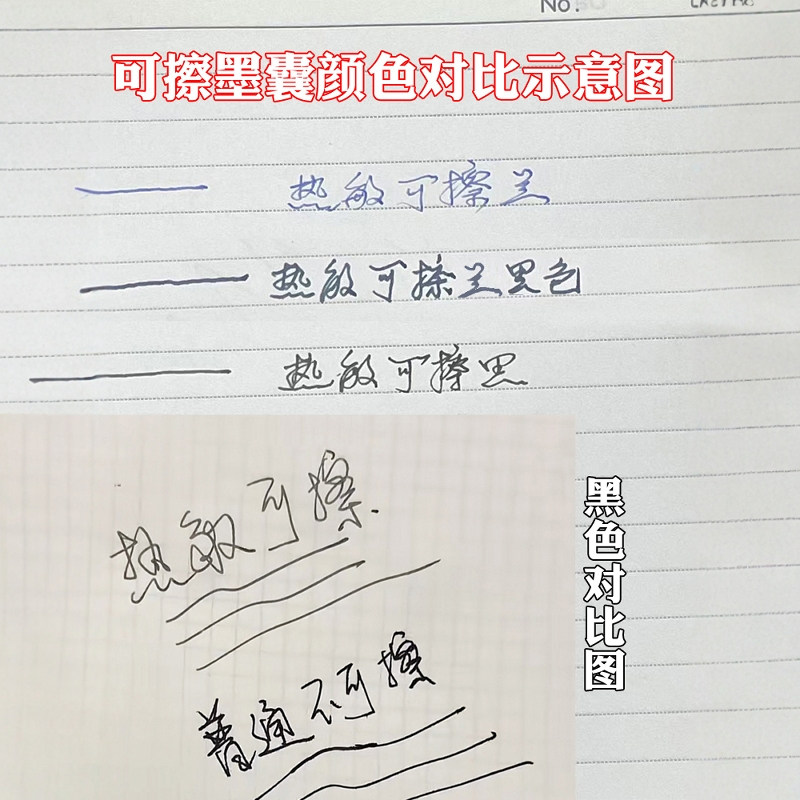 No.
可擦墨囊颜色对比示意图
热敏可擦兰
热敏可擦兰黑色
热敏可擦黑
热敏可擦
普通不可擦
黑色对比图